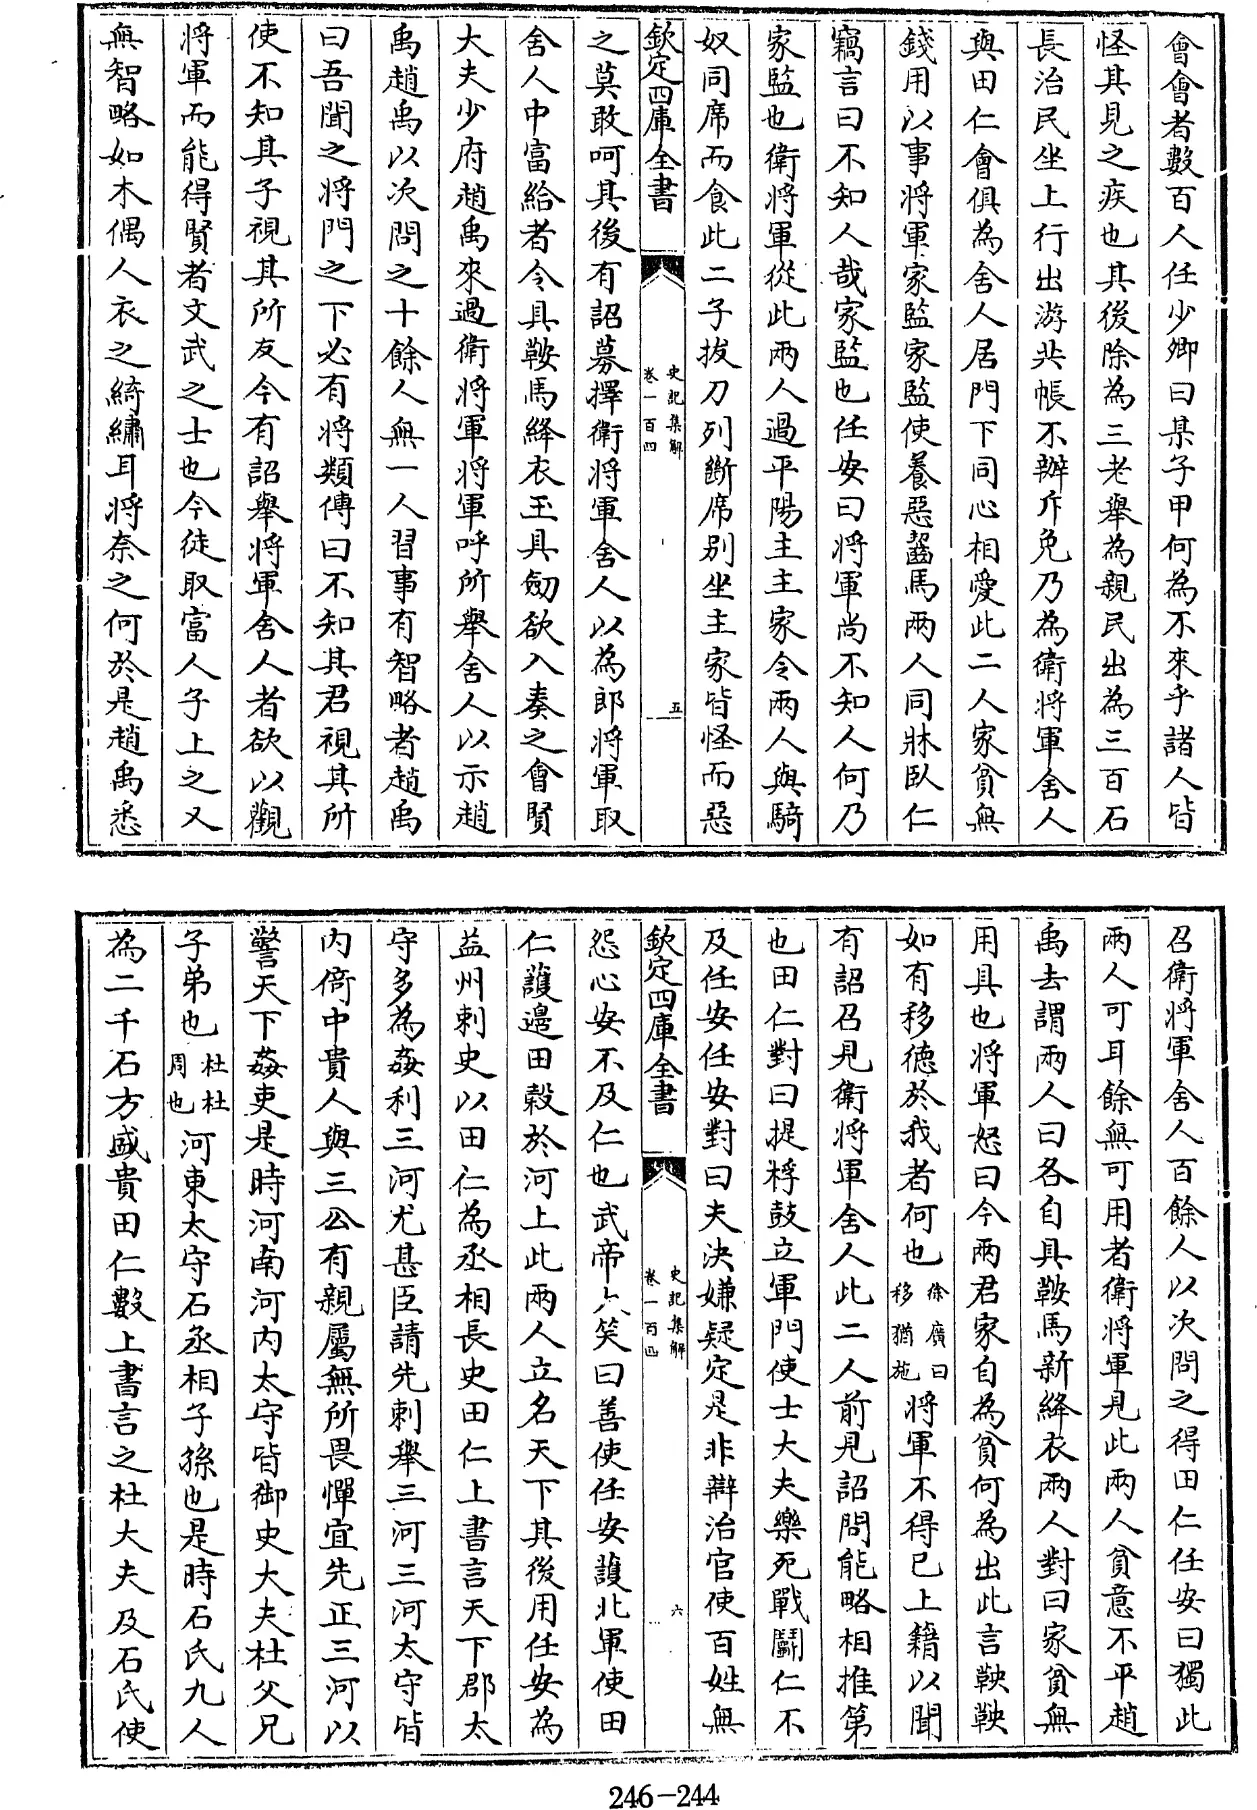 會會者數百人任少卿曰某子甲何為不來乎諸人皆
怪其見之疾也其後除為三老舉為親民出為三百石
長治民坐上行出游共帳不辦斥免乃為衛將軍舍人
與田仁會俱為舍人居門下同心相愛此二人家貧無
錢用以事將軍家監家監使養惡齧馬兩人同牀臥仁
竊言曰不知人哉家監也任安曰將軍尚不知人何乃
家監也衛將軍從此兩人過平陽主主家令兩人與騎
奴同席而食此二子拔刀列斷席別坐主家皆怪而惡
欽定四庫全書
史記集解
卷一百四
五
之莫敢呵其後有詔募擇衛將軍舍人以為郎將軍取
舍人中富給者令具鞍馬絳衣玉具劒欲入奏之會賢
大夫少府趙禹來過衛將軍將軍呼所舉舍人以示趙
禹趙禹以次問之十餘人無一人習事有智略者趙禹
曰吾聞之將門之下必有將類傳曰不知其君視其所
使不知其子視其所友今有詔舉將軍舍人者欲以觀
將軍而能得賢者文武之士也今徒取富人子上之又
無智略如木偶人衣之綺繡耳將奈之何於是趙禹悉
召衛將軍舍人百餘人以次問之得田仁任安曰獨此
兩人可耳餘無可用者衛將軍見此兩人貧意不平趙
禹去謂兩人曰各自具鞍馬新絳衣兩人對曰家貧無
用具也將軍怒曰今兩君家自為貧何為出此言鞅鞅
如有移德於我者何也徐廣曰移猶施將軍不得已上籍以聞
有詔召見衛將軍舍人此二人前見詔問能略相推第
也田仁對曰提桴鼓立軍門使士大夫樂死戰鬭仁不
及任安任安對曰夫決嫌疑定是非辯治官使百姓無
欽定四庫全書
史記集解
卷一百四
六
怨心安不及仁也武帝大笑曰善使任安護北軍使田
仁護邊田穀於河上此兩人立名天下其後用任安為
益州刺史以田仁為丞相長史田仁上書言天下郡太
守多為姦利三河尤甚臣請先刺舉三河三河太守皆
内倚中貴人與三公有親屬無所畏憚宜先正三河以
警天下姦吏是時河南河内太守皆御史大夫杜父兄
子弟也杜杜周也河東太守石丞相子孫也是時石氏九人
為二千石方盛貴田仁數上書言之杜大夫及石氏使
246-244